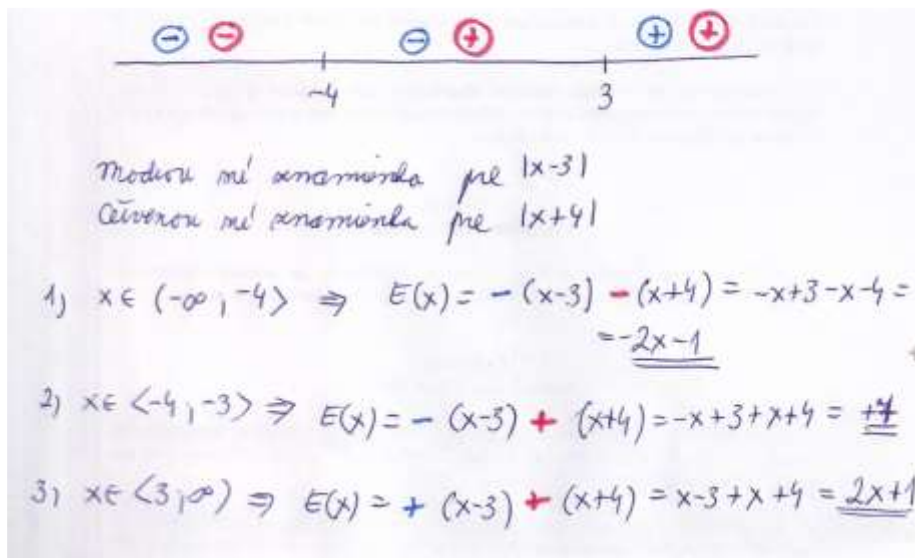 ⊖ ⊖ ⊖ ⊕ ⊕ ⊕
-4 3
Modrou sú znamienka pre |x-3|
Červenou sú znamienka pre |x+4|
1) x∈ (-∞, -4> ⇒ E(x) = - (x-3) - (x+4) = -x+3-x-4 =
= -2x-1
2) x∈ <-4, -3> ⇒ E(x) = - (x-3) + (x+4) = -x+3+x+4 = +7
3) x∈ <3, ∞) ⇒ E(x) = + (x-3) + (x+4) = x-3+x+4 = 2x+1